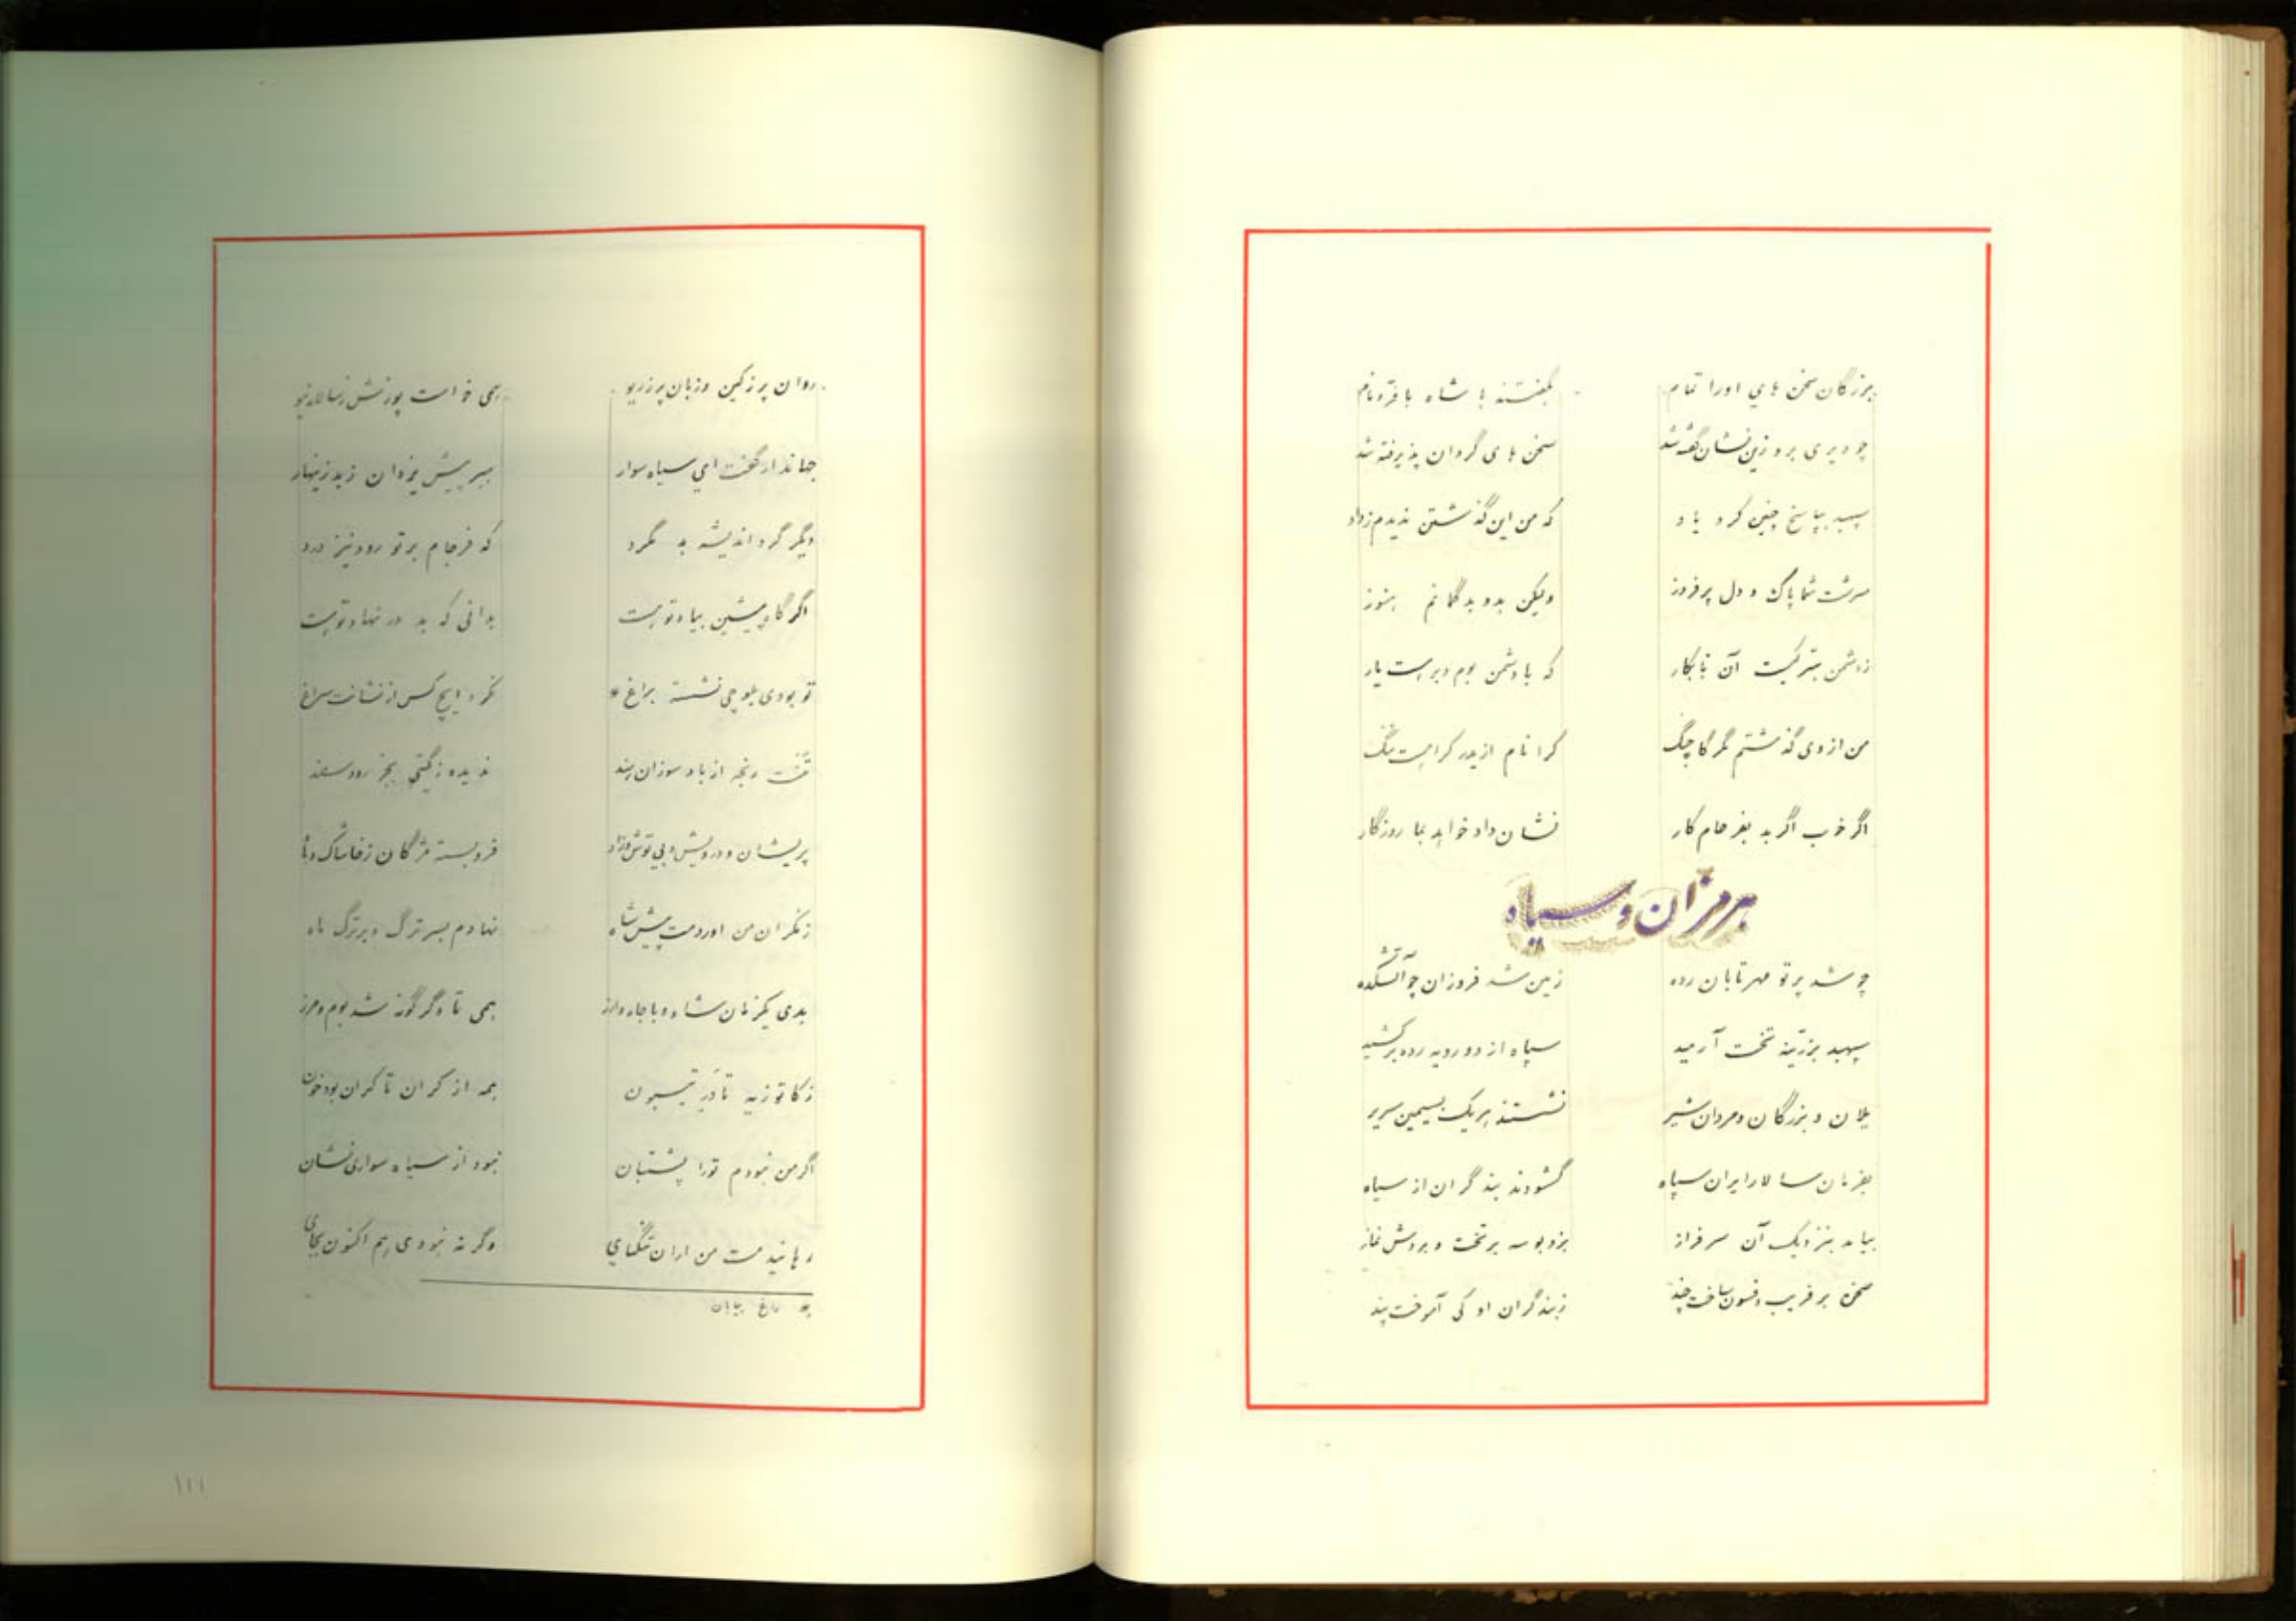 بزرگان سخن های اورا تمام بگفتند با شاه با فر و نام
چو دیری برو زین نشان گفته شد سخن های گردان پذیرفته شد
سپهبد بپاسخ چنین کرد یاد که من این گذشتن ندیدم ز داد
سرشت شما پاک و دل پر فروز ولیکن بدو بدگمانم هنوز
ز دشمن بتر کیست آن نابکار که با دشمن بوم و بر است یار
من از وی گذشتم مگر گاه چنگ کرا نام ازیدر کراهست ننگ
اگر خوب اگر بد بفرجام کار نشان داد خواهد بما روزگار
هرمزان و سیاه
چو شد پرتو مهر تابان رده زمین شد فروزان چو آتشکده
سپهبد بزرینه تخت آرمید سپاه از دو رویه رده برکشید
یلان و بزرگان و مردان شیر نشستند هر یک بسیمین سریر
بفرمان سالار ایران سپاه گشودند بند گران از سیاه
بیامد بنزدیک آن سرفراز بزد بوسه بر تخت و بردش نماز
سخن بر فریب و فسون ساخت چند ز بند گران او کی آموخت پند
روان پر ز کین و زبان پر ز ریو همی خواست پوزش ز سالار نیو
جهاندار گفت ای سیاه سوار ببر پیش یزدان ز بد زینهار
دیگر گرد اندیشه بد مگرد که فرجام بر تو رود نیز درد
اگر گاه پیشین بیاد تو هست بدانی که بد در نهاد تو هست
تو بودی بلوچی نشسته براغ * نکرد ایچ کس از نشانت سراغ
تنت رنجه از باد سوزان هند ندیده ز گیتی بجز رود سند
پریشان و درویش و بی توش و زاد فروبسته مژگان ز خاشاک و باد
ز مکران من اوردمت پیش شاه نهادم بسر ترگ و بر ترگ ماه
بدی یکزمان شاد و با جاه و ارز همی تا دگرگونه شد بوم و مرز
ز کاتوزیه تا در تیسبون همه از کران تا کران بود خون
اگر من نبودم تورا پشتبان نبود از سیاه سواری نشان
رهانیدمت من ازان تنگنای وگرنه نبودی هم اکنون بجای
* راغ بیابان
۱۲۱